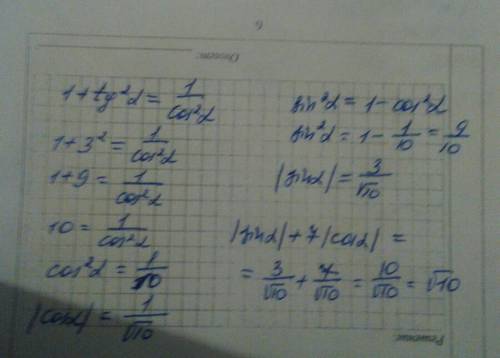 6
Ответ:
1 + tg²α = 1/cos²α
1 + 3² = 1/cos²α
1 + 9 = 1/cos²α
10 = 1/cos²α
cos²α = 1/10
|cosα| = 1/√10
sin²α = 1 - cos²α
sin²α = 1 - 1/10 = 9/10
|sinα| = 3/√10
|sinα| + 7|cosα| =
= 3/√10 + 7/√10 = 10/√10 = √10
Решение: